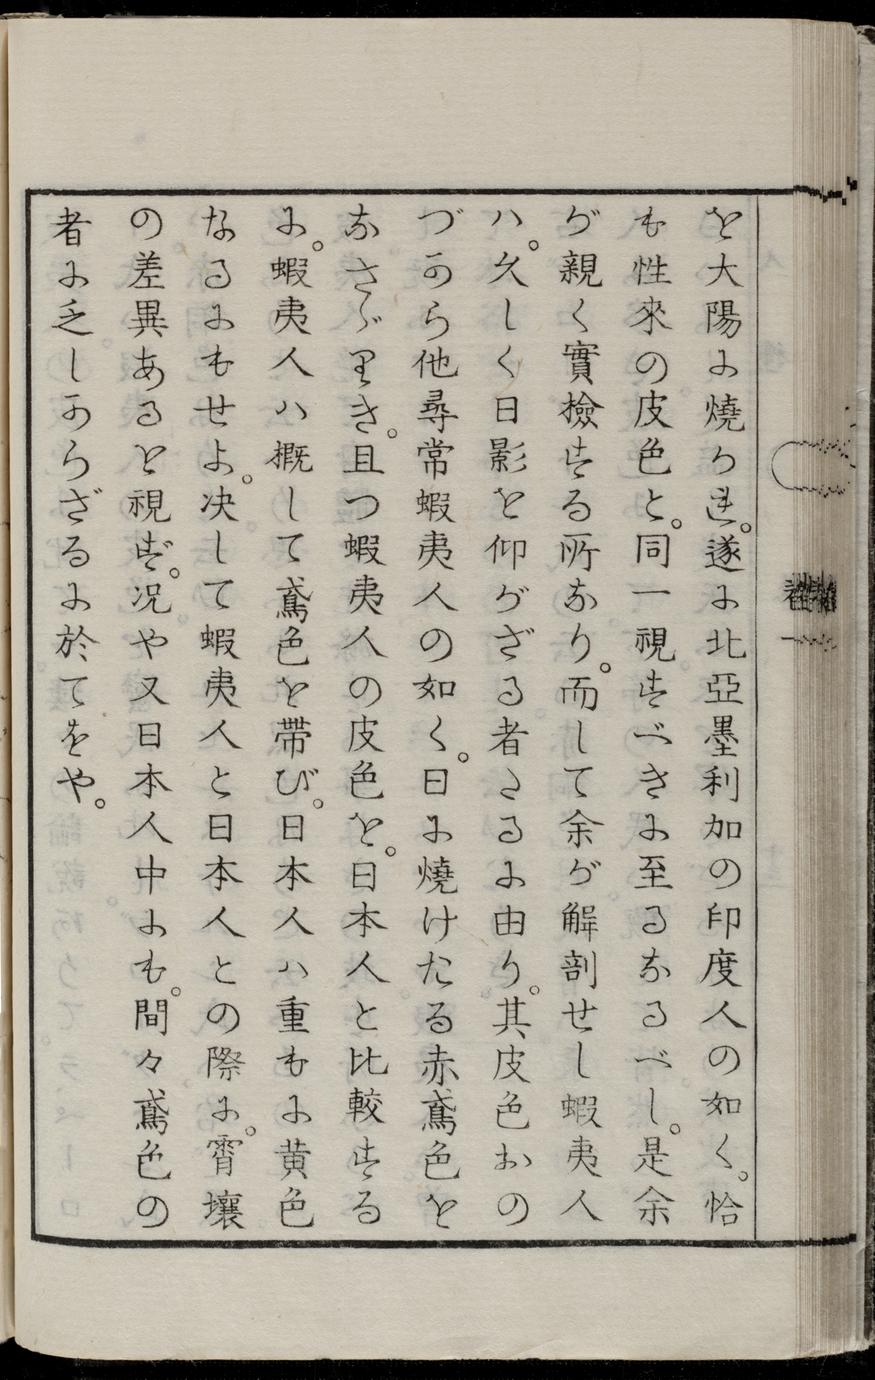 を大陽に燒かれ。遂に北亞墨利加の印度人の如く。恰
も性來の皮色と。同一視すべきに至るなるべし。是余
が親く實檢する所なり。而して余が解剖せし蝦夷人
ハ。久しく日影を仰がざる者さるに由り。其皮色おの
づから他尋常蝦夷人の如く。日に燒けたる赤鳶色を
なさゞりき。且つ蝦夷人の皮色を。日本人と比較する
に。蝦夷人ハ概して鳶色を帶び。日本人ハ重もに黄色
なるにもせよ。决して蝦夷人と日本人との際に。霄壤
の差異あるを視ず。况や又日本人中にも。間々鳶色の
者に乏しからざるに於てをや。